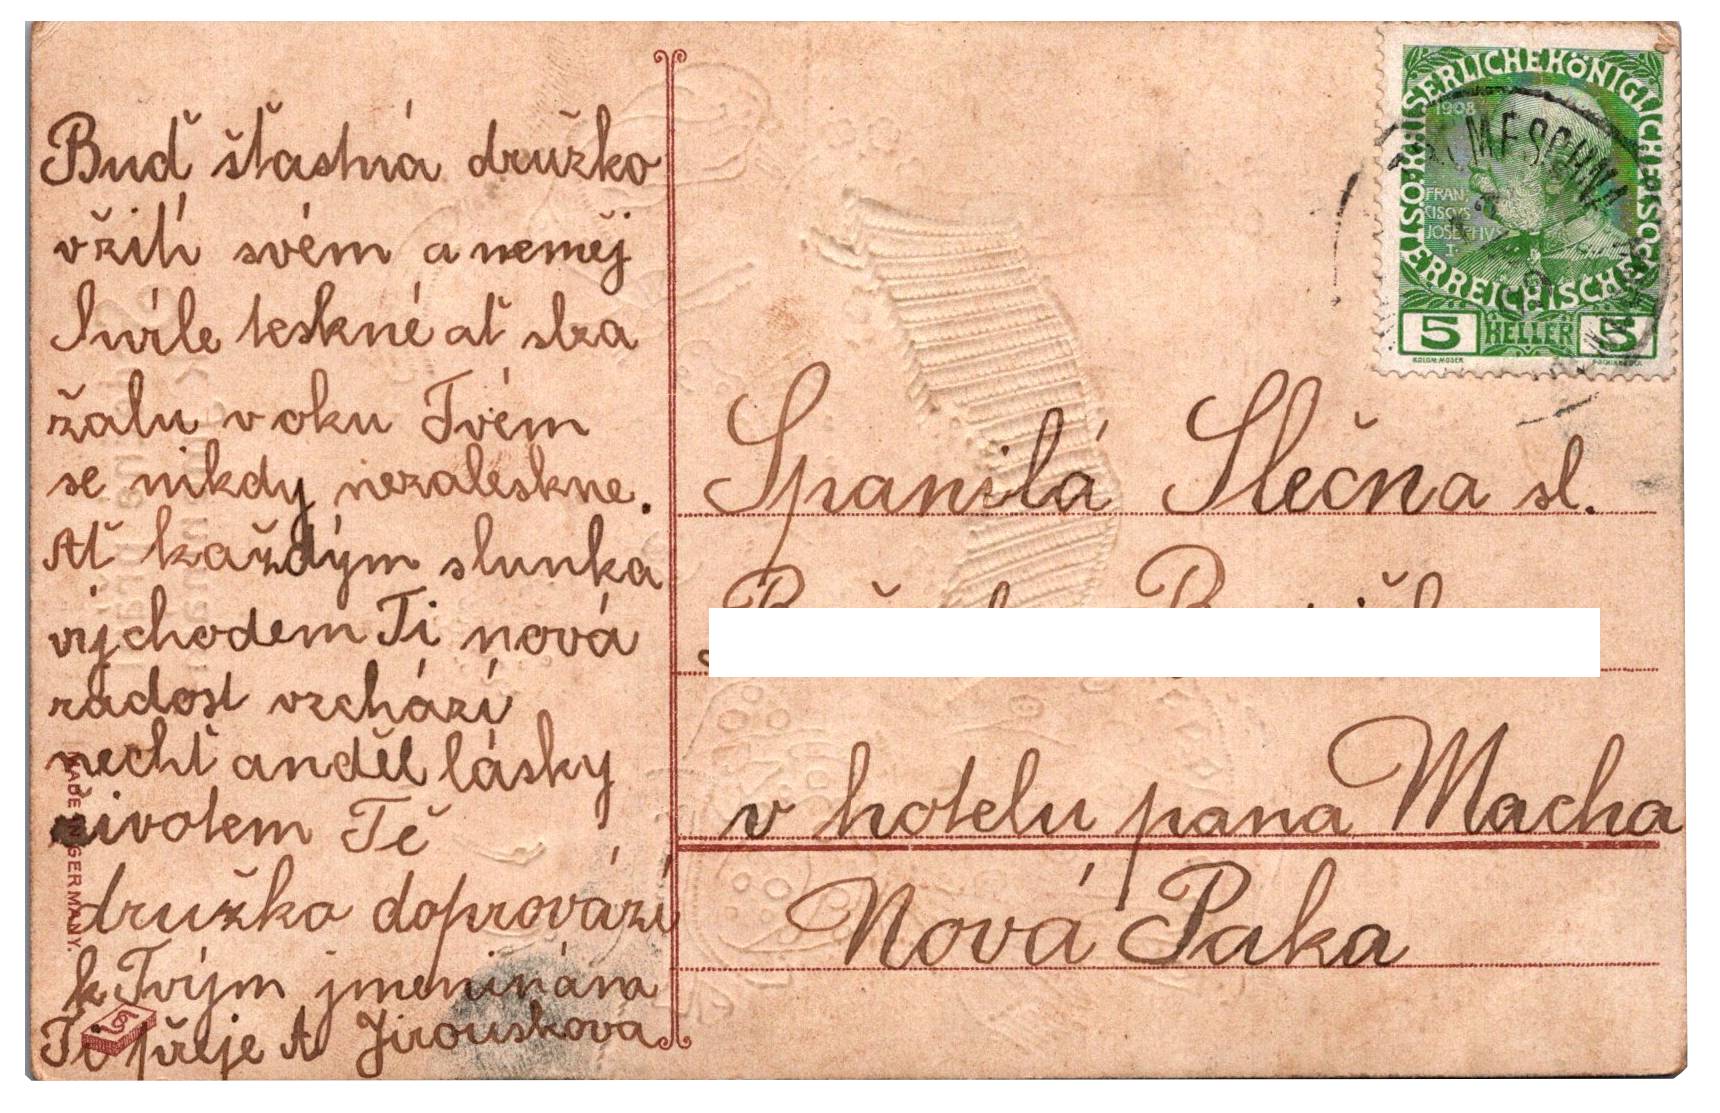 Buď šťastná družko
vžití svém a neměj
chvíle teskné ať slza
žalu v oku Tvém
se nikdy nezaleskne.
Ať každým slunka
východem Ti nová
radost vzchází
nechť anděl lásky
životem Tě
družko doprovází
k Tvým jmeninám
Ti přeje A Jirouskova
MADE IN GERMANY.
KAISERLICHE KÖNIGLICHE
ÖSTERREICHISCHE
1908
FRAN,
CISCVS
JOSEPHVS
I.
5 HELLER 5
KOLOM. MOSER
Spanilá Slečna sl.
v hotelu pana Macha
Nová Paka